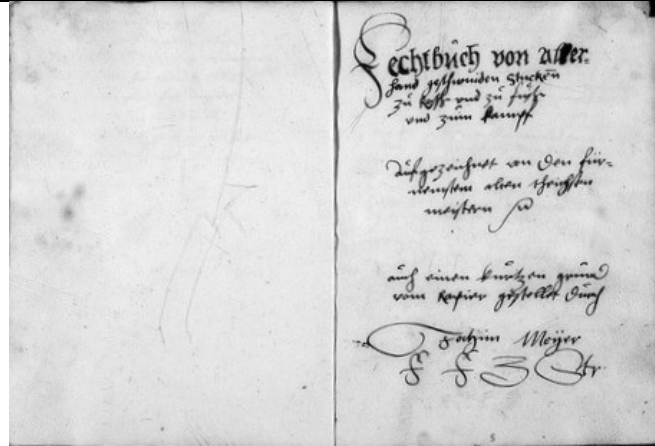 Fechtbuch von aller-
hand geschwinden Stucken
zu Ross und zu fuss
und zum kampf
aufgezeichnet von den für-
nemsten alten
meistern
auch einen kurtzen grund
vom Rapier gestellet durch
Joachim Meÿer
F F Z Str
5